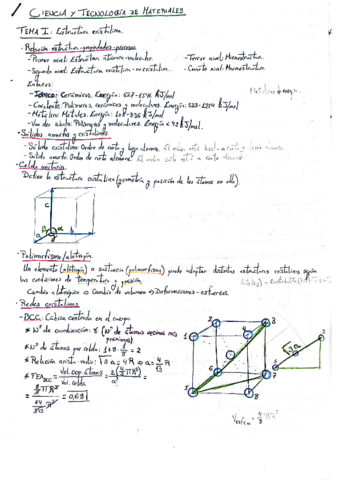 1 CIENCIA Y TECNOLOGÍA DE MATERIALES
TEMA I: Estructura cristalina.
- Relación estructura-propiedades-proceso
- Primer nivel: Estructura atómica-molecular. - Tercer nivel: Microestructura.
- Segundo nivel: Estructura cristalina-no cristalina. - Cuarto nivel: Macroestructura
- Enlaces:
- Iónico: Cerámicos. Energía: KJ/mol
- Covalente: Polímeros, cerámicos y moleculares. Energía: 523-1254 KJ/mol
- Metálico: Metales. Energía: KJ/mol
- Van der Waals: Polímeros y moleculares. Energía < 42 KJ/mol.
- Sólidos amorfos y cristalinos
- Sólido cristalino: Orden de corto y largo alcance.
- Sólido amorfo: Orden de corto alcance. El orden solo está a corto alcance
- Celda unitaria
Define la estructura cristalina (geometría y posición de los átomos en ella).
c
a
b
α
- Polimorfismo/alotropía
Un elemento (alotropía) o sustancia (polimorfismo) puede adoptar distintas estructuras cristalinas según
las condiciones de temperatura y presión.
Cambio alotrópico ⇒ Cambio de volumen ⇒ Deformaciones - esfuerzos.
- Redes cristalinas
- BCC: Cúbica centrada en el cuerpo.
* Nº de coordinación: 8 (Nº de átomos vecinos más
próximos)
* Nº de átomos por celda: 1+8·1/8 = 2
* Relación arista-radio: √3 a = 4R ⇒ a = 4/√3 R
* FEA BCC = Vol. ocp. átomos / Vol. celda = 2(4/3 πR³) / a³ =
= 8/3 πR³ / 64/3√3 R³ = 0,681
1
2
3
4
5
6
7
8
√3 a
3
5
7
V esfera = 4/3 πr³